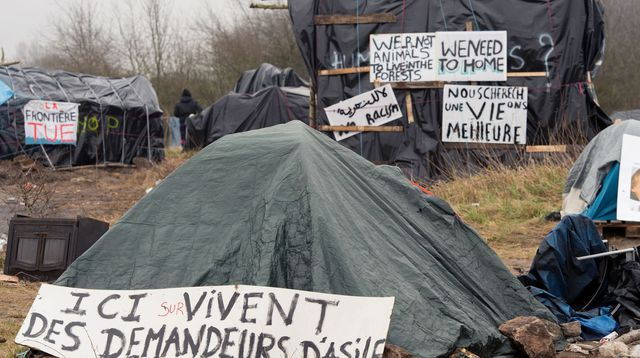 LA
FRONTIÈRE
TUE
WE R NOT
ANIMALS
TO LIVE IN THE
FORESTS
WE NEED
TO HOME
HUM
S?
RACISM
NOUS CHERCHONS
UNE VIE
MEILLEURE
ICI SURVIVENT
DES DEMANDEURS D'ASILE